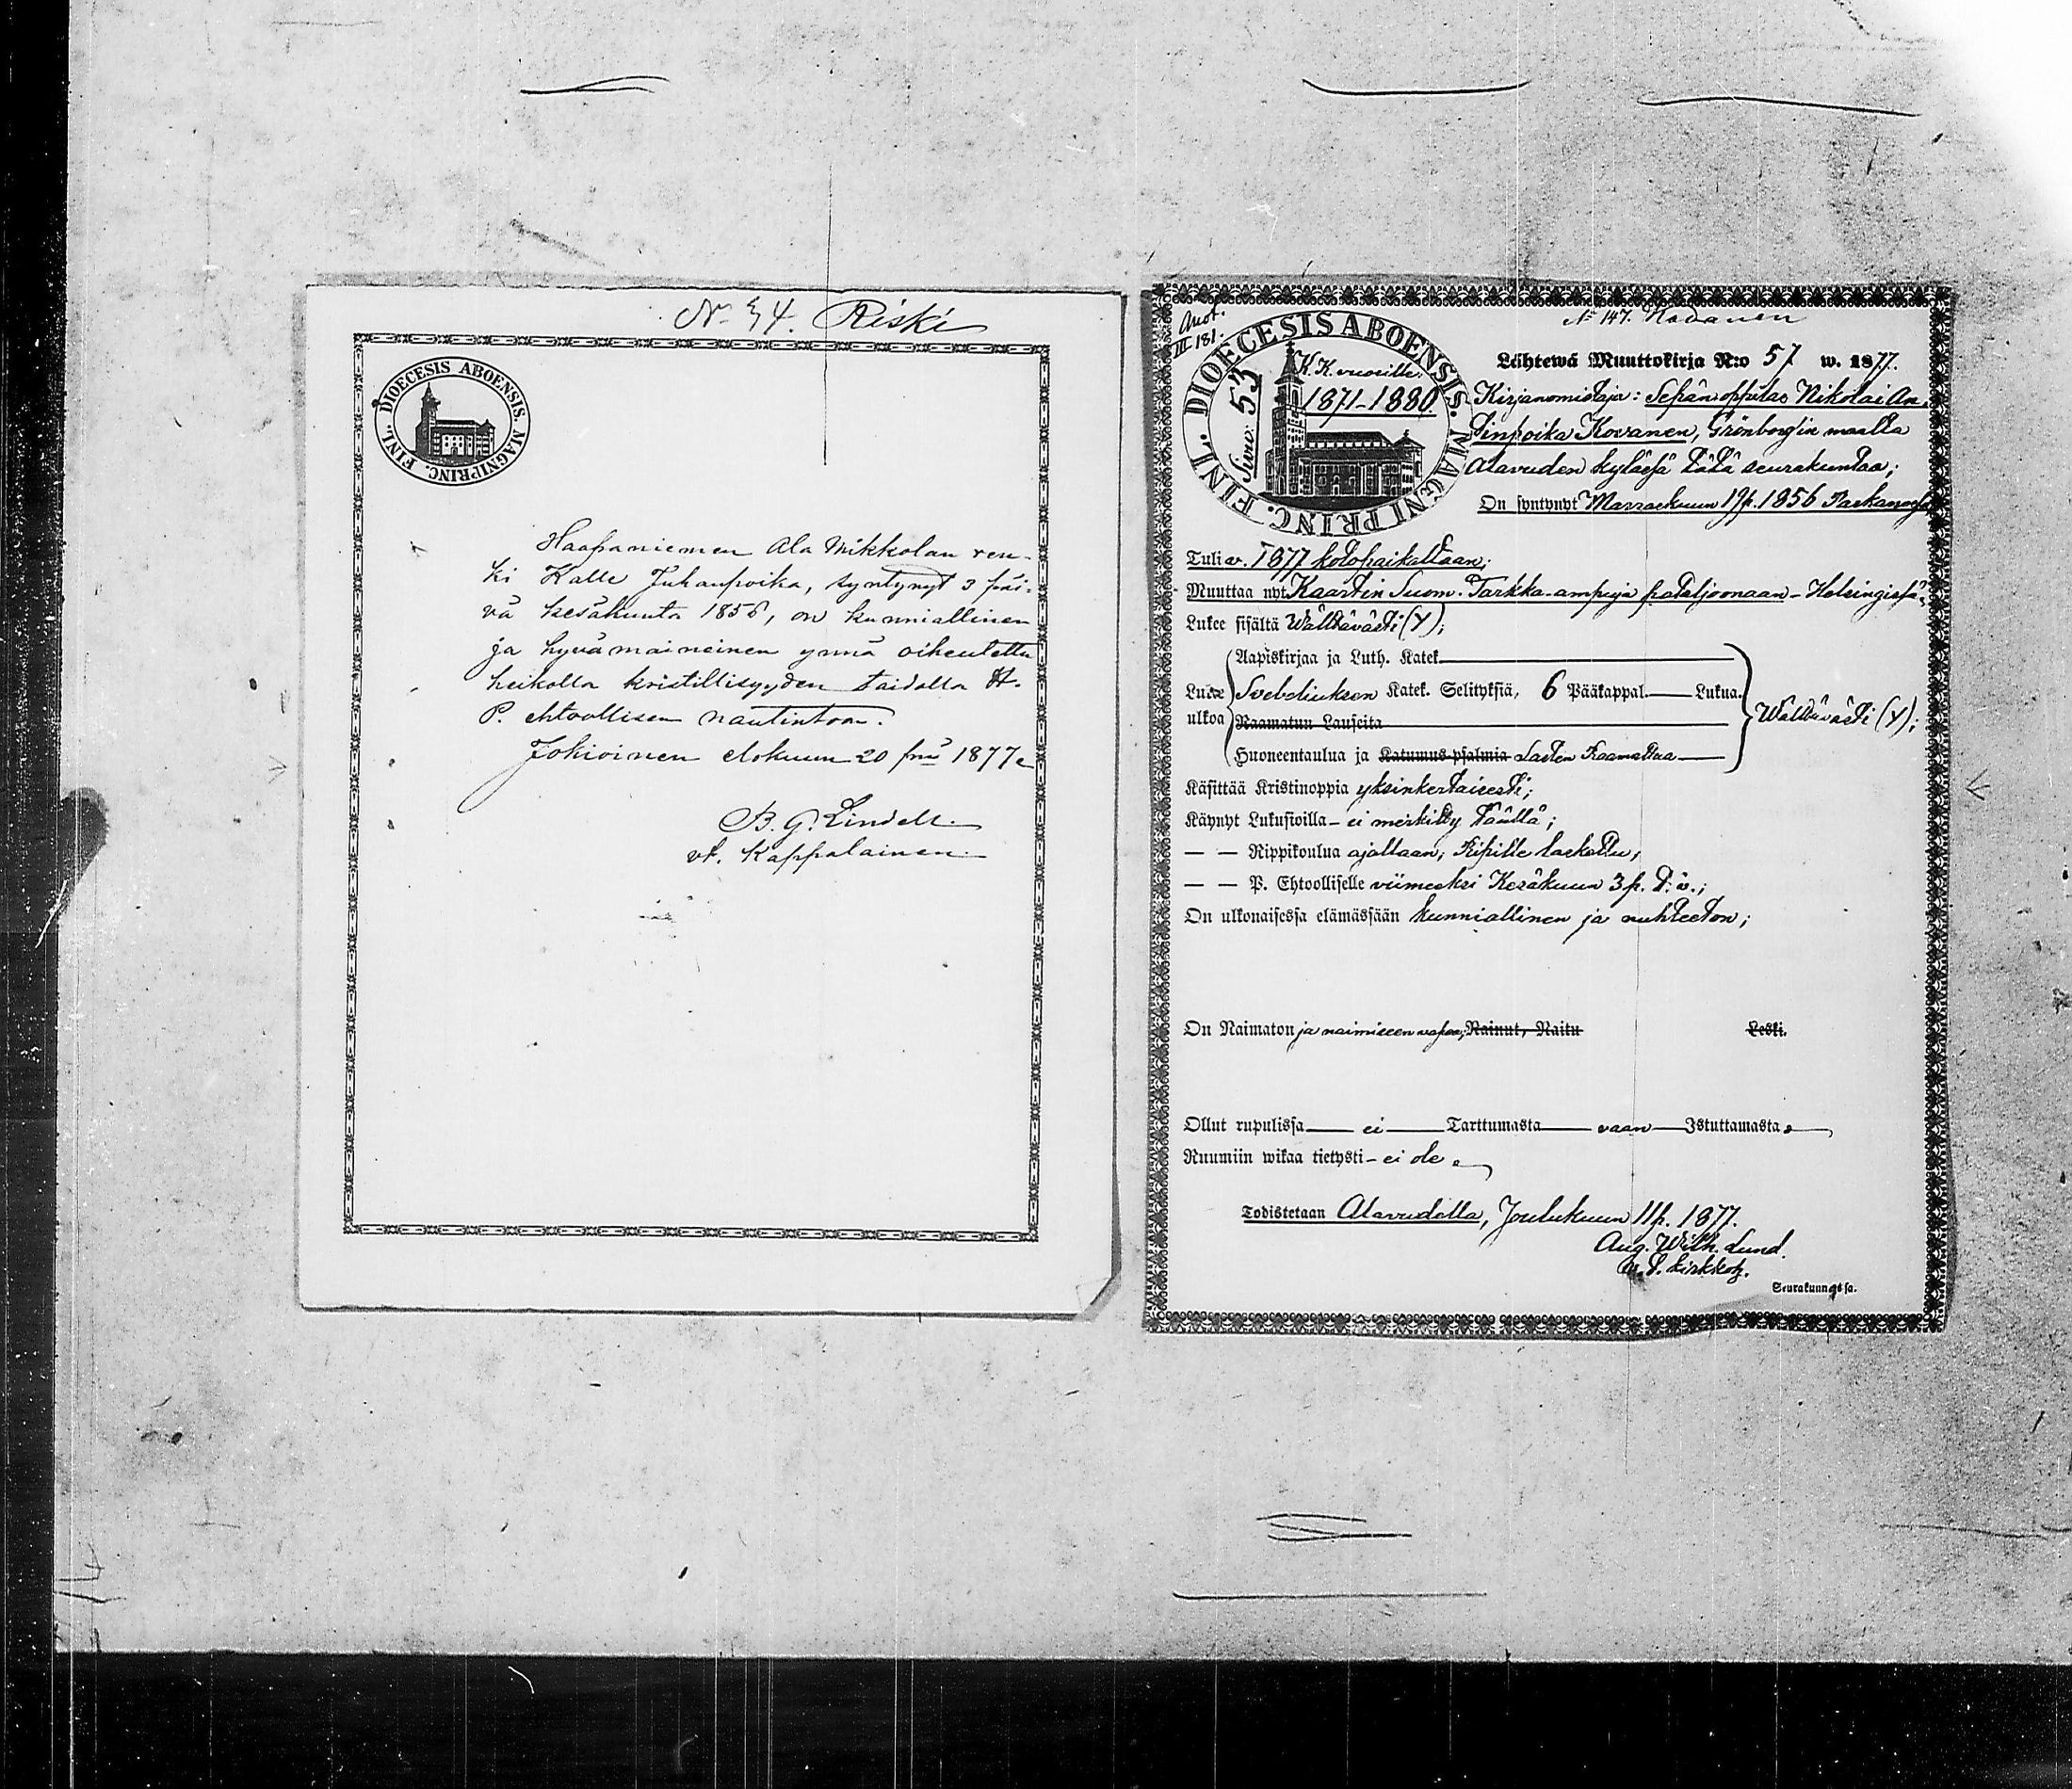 No 34. Riski
DIOECESIS ABOENSIS. MAGNI PRINC. FINL.
Haapaniemen Ala Mikkolan ren-
ki Kalle Juhanpoika, syntynyt 3 päi-
vä kesäkuuta 1856, on kunniallinen
ja hyvämaineinen ynnä oikeutettu
heikolla kristillisyyden taidolla H.
P. ehtoollisen nautintoon.
Jokioinen elokuun 20 pnä 1877
B. G. Lindell.
vt. Kappalainen.
No 147.
Anot.
III 181.
DIOECESIS ABOENSIS. MAGNI PRINC. FINL.
K. K. vuosille
1871-1880
Sivu: 53
Lähtewä Muuttokirja N:o 57 w. 1877.
Kirjanomistaja: Sepänoppilas Nikolai An-
tinpoika Kovanen, Grönborg'in maalta
Alavuden kylässä tätä seurakuntaa;
On syntynyt Marraskuun 19p. 1856
Tuli w. 1877 kotopaikaltaan;
Muuttaa nyt Kaartin Suom. Tarkka-ampuja pataljoonaan - Helsingissä;
Lukee sisältä Wälttävästi (Y);
Aapiskirjaa ja Luth. Katek.
Lukee ulkoa Svebeliuksen Katek. Selityksiä, 6 Pääkappal. Lukua. Wälttävästi (Y);
Raamatun Lauseita
Huoneentaulua ja Katumus-psalmia Lasten Raamattua
Käsittää Kristinoppia yksinkertaisesti;
Käynyt Lukusioilla - ei merkitty täällä;
— — Rippikoulua ajallaan; Ripille laskettu;
— — P. Ehtoolliselle viimeksi Kesäkuun 3 p. t. v.;
On ulkonaisessa elämässään kunniallinen ja nuhteeton;
On Naimaton ja naimiseen vapaa; Nainut, Naitu Leski.
Ollut rupulissa ei Tarttumasta vaan Istuttamasta
Ruumiin wikaa tietysti - ei ole.
Todistetaan Alavudella, Joulukuun 11p. 1877.
Aug. Wilh. Lund.
Seurakunnassa.